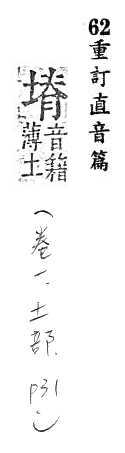 62重訂直音篇
塉音籍
薄土
(卷一.土部.P31)